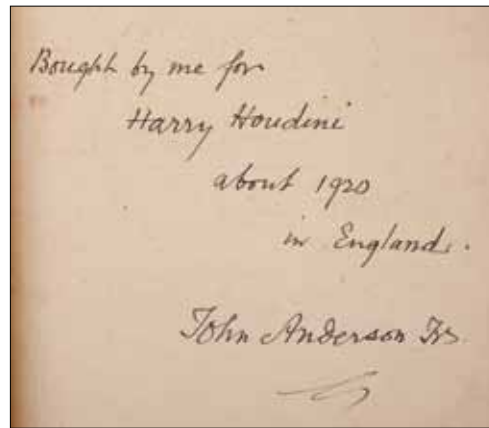 Bought by me for
Harry Houdini
about 1920
in England.
John Anderson Jr.